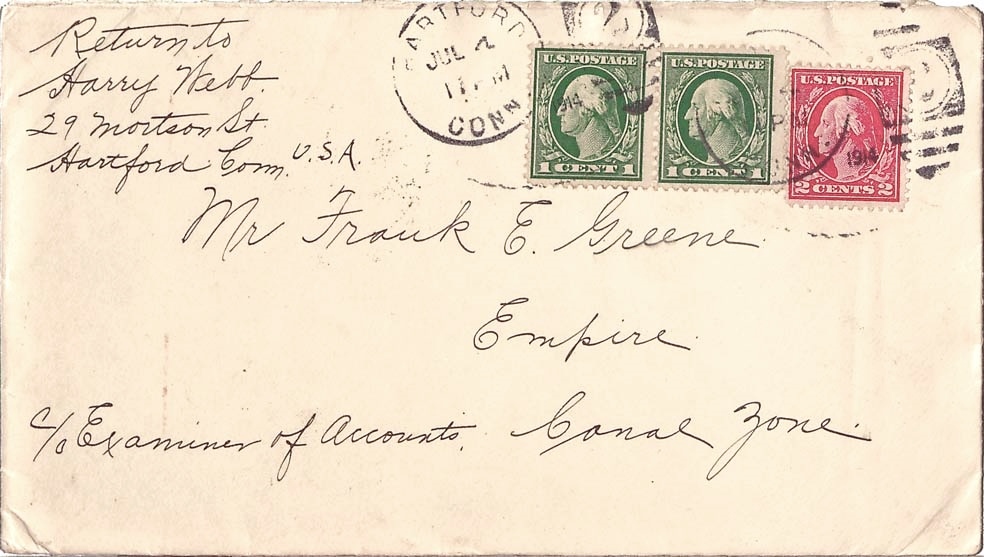 Return to
Harry Webb.
29 Mortson St.
Hartford Conn. U.S.A.
HARTFORD
JUL
CONN
1914
U.S. POSTAGE
1 CENT 1
U.S. POSTAGE
1 CENT 1
U.S. POSTAGE
2 CENTS 2
1914
Mr Frank E. Greene
Empire
c/o Examiner of Accounts. Canal Zone.